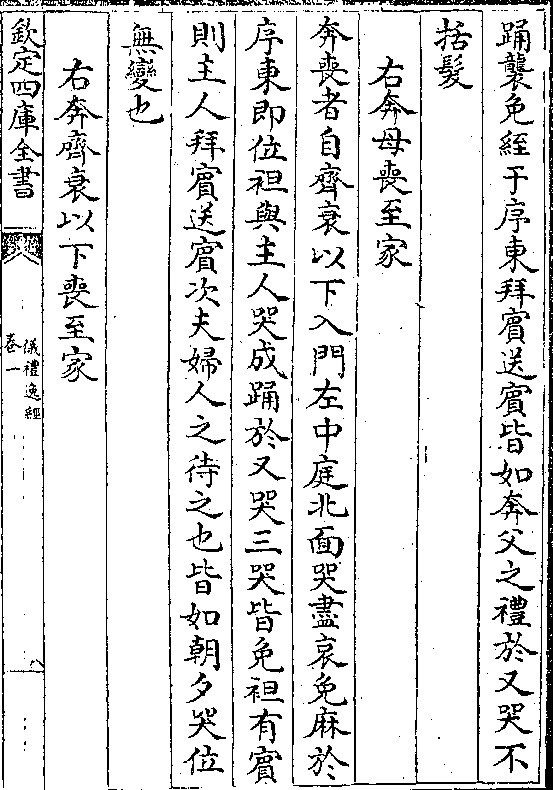 踊襲免絰于序東拜賔送賔皆如奔父之禮於又哭不
括髮
右奔母喪至家
奔喪者自齊衰以下入門左中庭北面哭盡哀免麻於
序東即位袒與主人哭成踊於又哭三哭皆免袒有賔
則主人拜賔送賔次夫婦人之待之也皆如朝夕哭位
無變也
右奔齊衰以下喪至家
欽定四庫全書
儀禮逸經
卷一